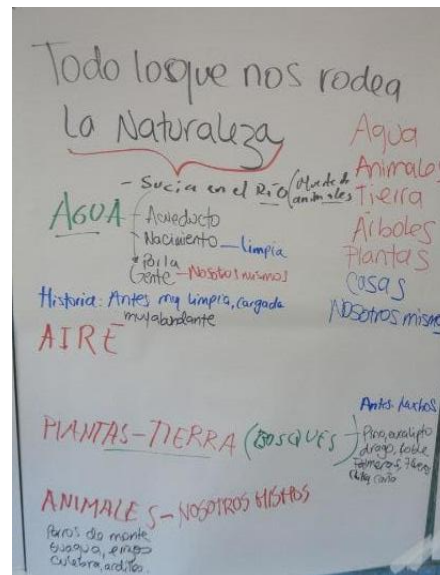 Todo losque nos rodea
La Naturaleza
Agua
Animales
Tierra
Árboles
Plantas
Cosas
Nosotros mismos
- Sucia en el Río (Muerte de animales
AGUA - Acueducto
Nacimiento - limpia
Por la
Gente - Nosotros mismos
Historia: Antes muy limpia, cargada
muy abundante
AIRE
Antes muchos
PLANTAS - TIERRA (BOSQUES)
Pino, eucalipto
drago, roble
Palmeras,
caña
ANIMALES - NOSOTROS MISMOS
Perros de monte
culebra, ardillas